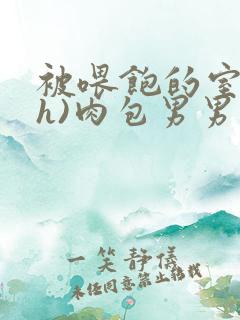 被喂饱的室
h)肉包男男
一笑静儀
未经同意禁止转载